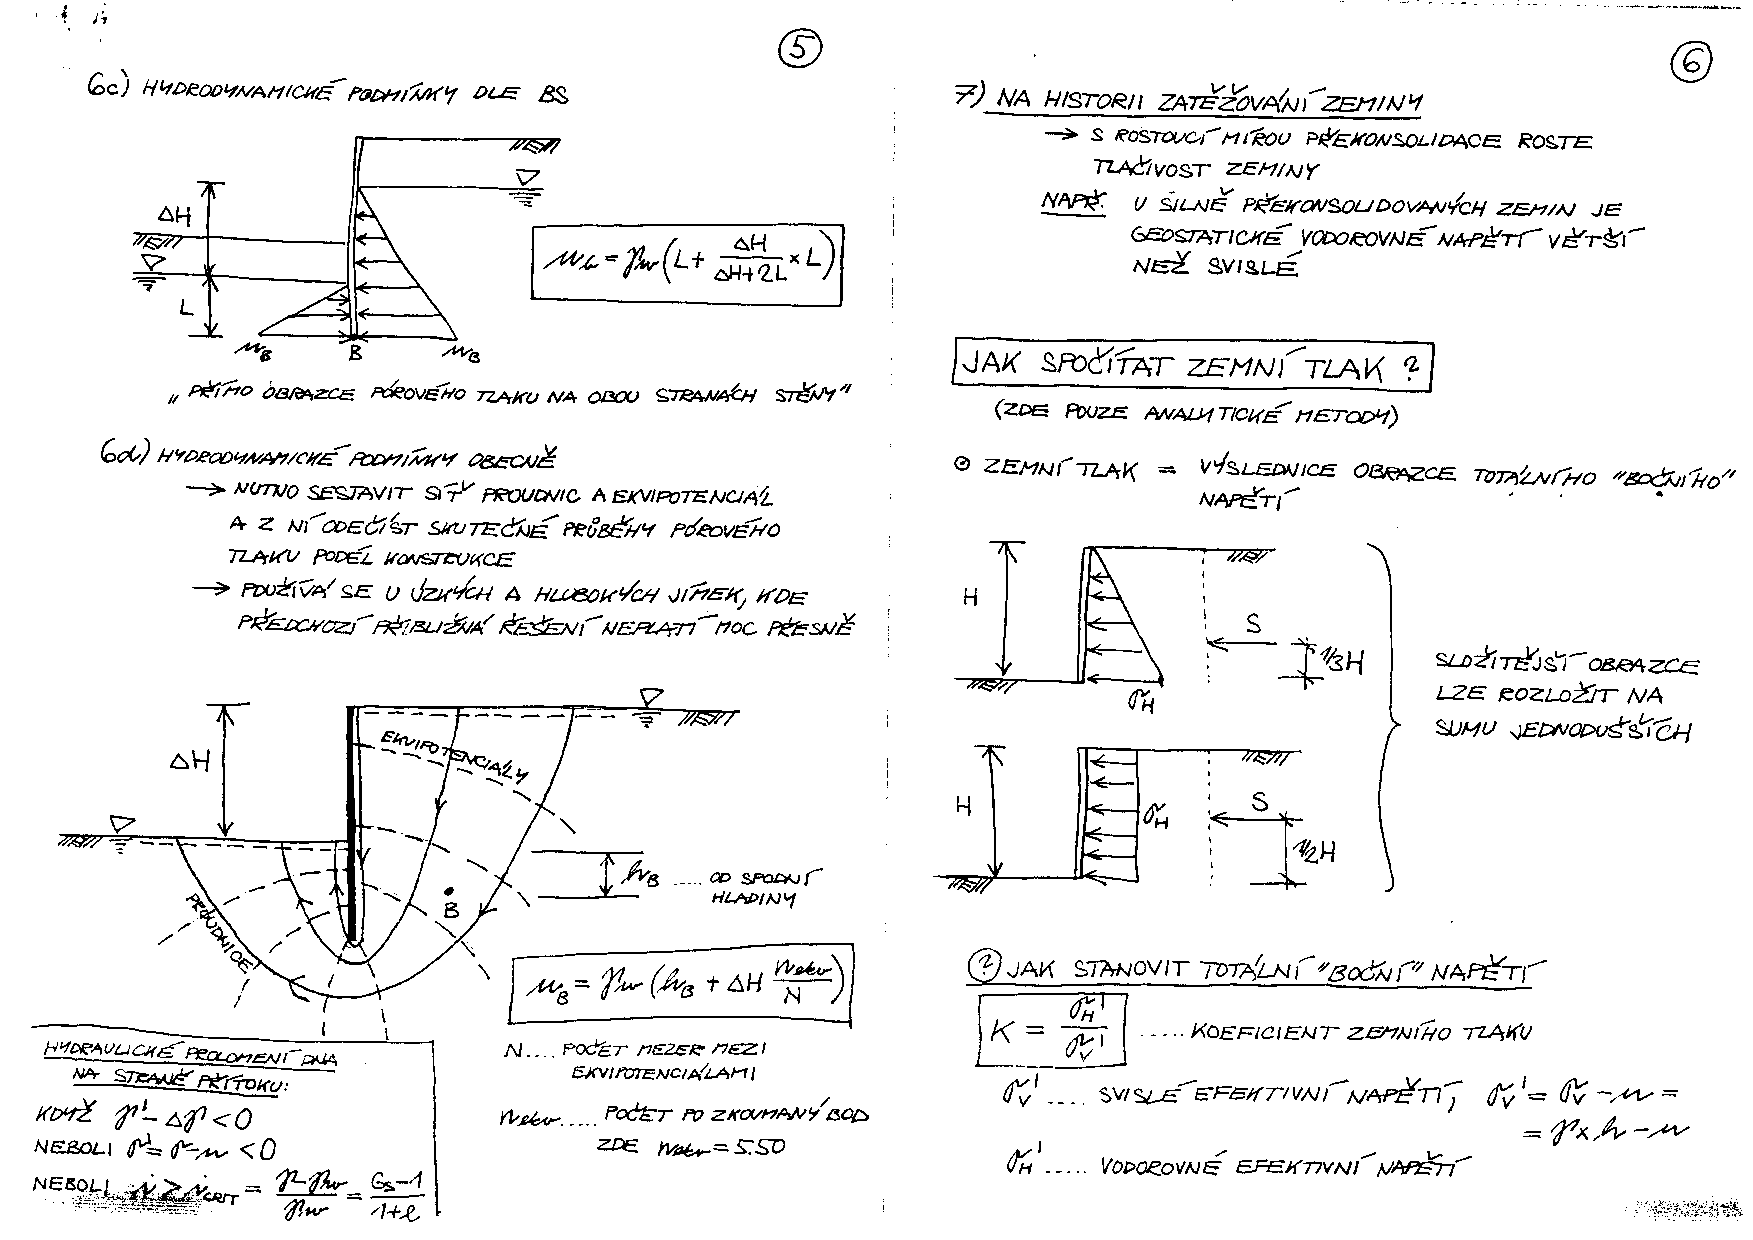 5
6c) HYDRODYNAMICKÉ PODMÍNKY DLE BS
ΔH
L
u_B
B
u_B
u_b = γ_w (L + ΔH/(ΔH+2L) × L)
„PŘÍMO OBRAZCE PÓROVÉHO TLAKU NA OBOU STRANÁCH STĚNY"
6d) HYDRODYNAMICKÉ PODMÍNKY OBECNĚ
→ NUTNO SESTAVIT SÍŤ PROUDNIC A EKVIPOTENCIÁL
A Z NÍ ODEČÍST SKUTEČNÉ PRŮBĚHY PÓROVÉHO
TLAKU PODÉL KONSTRUKCE
→ POUŽÍVÁ SE U ÚZKÝCH A HLUBOKÝCH JÍMEK, KDE
PŘEDCHOZÍ PŘIBLIŽNÁ ŘEŠENÍ NEPLATÍ MOC PŘESNĚ
ΔH
EKVIPOTENCIÁLY
PROUDNICE
B
h_B .... OD SPODNÍ
HLADINY
u_B = γ_w (h_B + ΔH n_ekv/N)
N .... POČET MEZER MEZI
EKVIPOTENCIÁLAMI
n_ekv ..... POČET PO ZKOUMANÝ BOD
ZDE n_ekv = 5.50
HYDRAULICKÉ PROLOMENÍ DNA
NA STRANĚ PŘÍTOKU:
KDYŽ γ' - Δγ < 0
NEBOLI σ' = σ - u < 0
NEBOLI i ≥ i_CRIT = (γ - γ_w)/γ_w = (G_s - 1)/(1 + e)
6
7) NA HISTORII ZATĚŽOVÁNÍ ZEMINY
→ S ROSTOUCÍ MÍROU PŘEKONSOLIDACE ROSTE
TLAČIVOST ZEMINY
NAPŘ. U SILNĚ PŘEKONSOLIDOVANÝCH ZEMIN JE
GEOSTATICKÉ VODOROVNÉ NAPĚTÍ VĚTŠÍ
NEŽ SVISLÉ
JAK SPOČÍTAT ZEMNÍ TLAK?
(ZDE POUZE ANALYTICKÉ METODY)
⊙ ZEMNÍ TLAK = VÝSLEDNICE OBRAZCE TOTÁLNÍHO "BOČNÍHO"
NAPĚTÍ
H
σ_H
S
1/3H
H
σ_H
S
1/2H
SLOŽITĚJŠÍ OBRAZCE
LZE ROZLOŽIT NA
SUMU JEDNODUŠŠÍCH
? JAK STANOVIT TOTÁLNÍ "BOČNÍ" NAPĚTÍ
K = σ_H'/σ_V' ..... KOEFICIENT ZEMNÍHO TLAKU
σ_V' .... SVISLÉ EFEKTIVNÍ NAPĚTÍ, σ_V' = σ_V - u =
= γ × h - u
σ_H' ..... VODOROVNÉ EFEKTIVNÍ NAPĚTÍ